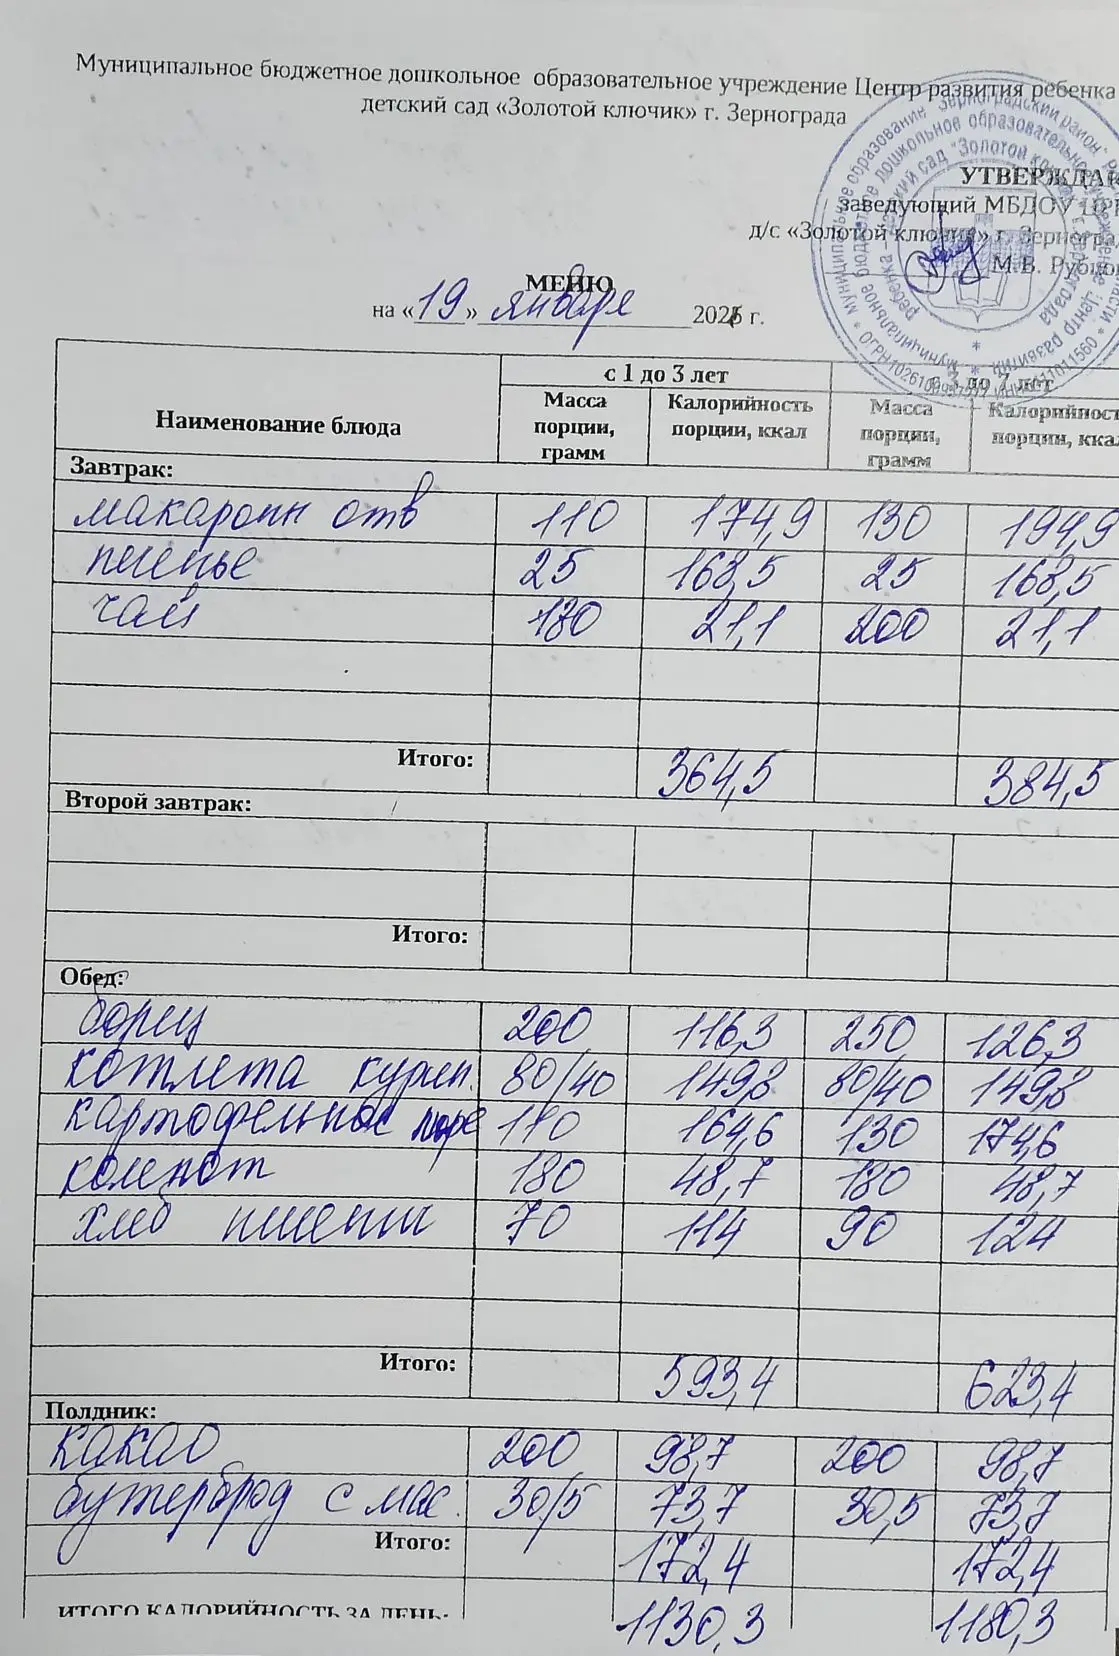 Муниципальное бюджетное дошкольное образовательное учреждение Центр развития ребенка
детский сад «Золотой ключик» г. Зернограда
УТВЕРЖДАЮ
заведующий МБДОУ ЦРР
д/с «Золотой ключик» г. Зерноград
М.В. Рубцов
МЕНЮ
на «19» января 2026 г.
с 1 до 3 лет с 3 до 7 лет
Наименование блюда Масса порции, грамм Калорийность порции, ккал Масса порции, грамм Калорийность порции, ккал
Завтрак:
макароны отв 110 174,9 130 194,9
печенье 25 168,5 25 168,5
чай 180 21,1 200 21,1
Итого: 364,5 384,5
Второй завтрак:
Итого:
Обед:
борщ 200 116,3 250 126,3
котлета курин. 80/40 149,8 80/40 149,8
картофельное пюре 110 164,6 130 174,6
компот 180 48,7 180 48,7
хлеб пшенич 70 114 90 124
Итого: 593,4 623,4
Полдник:
какао 200 98,7 200 98,7
бутерброд с мас. 30/5 73,7 30,5 73,7
Итого: 172,4 172,4
ИТОГО КАЛОРИЙНОСТЬ ЗА ДЕНЬ: 1130,3 1180,3